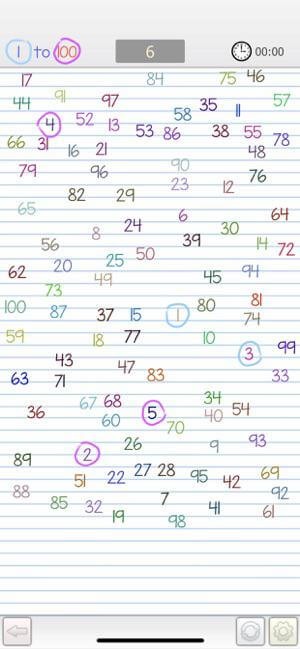 1 to 100 6 00:00
17 84 75 46
44 91 97 35 11 57
4 52 13 58
53 86 38 55
66 31 16 21 48 78
79 96 90 76
82 29 23 12
65 6 64
8 24 30
56 39 14 72
62 20 25 50 45 94
73 49
100 87 37 15 1 80 81
74
59 18 77 10 3 99
43 47
63 71 83 33
36 67 68 5 34 40 54
60 70
26 9 93
89 2
51 22 27 28 95 42 69
88 92
85 32 7 41 61
19 98